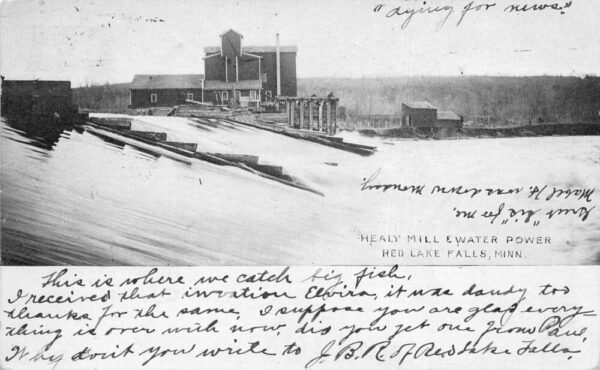 "dying for news."
Mabel H. was down Monday
"Sis" for me.
HEALY MILL & WATER POWER
RED LAKE FALLS, MINN.
This is where we catch big fish.
I received that invation Elvira, it was dandy too
thanks for the same, I suppose you are glad every-
thing is over with now, did you get one from Paul,
Why don't you write to J. B. R. of Red Lake Falls.